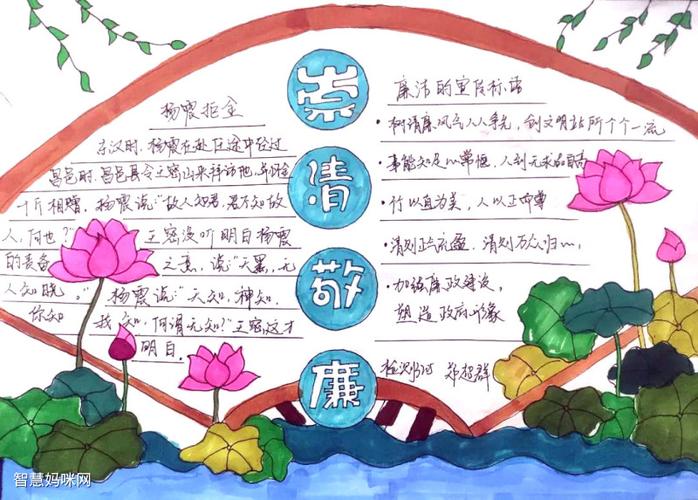 崇
清
敬
廉
杨震拒金
东汉时,杨震在赴任途中经过
昌邑时,昌邑县令王密出来拜访他,并怀金
十斤相赠,杨震说:"故人知君,君不知故
人,何也?" 王密没听明白杨震
的责备之意,说:"天黑,无
人知晓。" 杨震说:"天知,神知,
你知 我知,何谓无知?"王密这才
明白.
廉洁的宣传标语
·树清廉风气人人争先,创文明站所个个一流
·事能知足心常惬,人到无求品自高
·行以直为美,人以正即尊
·清则正气充盈,清则万众归心,
·加强廉政建设,
塑造政府形象
智慧妈咪网